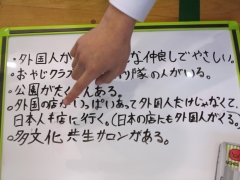 ・外国人が な仲良しでやさしい。
・おやじクラ り隊の人がいる。
・公園がたくさんある。
・外国の店がいっぱいあって外国人だけじゃなくて、
日本人も店に行く。(日本の店にも外国人がくる。)
・多文化共生サロンがある。